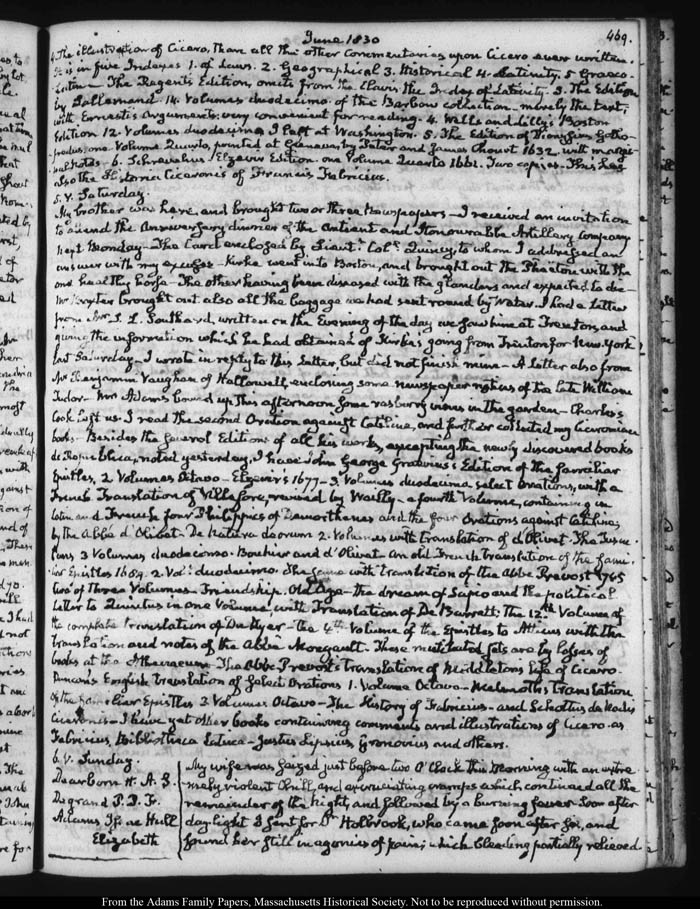 June 1830
469.
The illustration of Cicero, than all the other Commentaries upon Cicero ever written.
It is in five Indexes 1. of Laws. 2. Geographical 3. Historical 4. Latinity. 5 Graeco-
Latine. The Regent's Edition, omits from the Clavis the Index of Latinity. 3. The Edition
by Lallemand. 14. Volumes duodecimo. of the Barbou collection. merely the text,
with Ernesti's Arguments. very convenient for reading. 4. Wells and Lilly's Boston
Edition 12. Volumes duodecimo I left at Washington. 5. The Edition of Dionysius Gotho-
fredus, one Volume Quarto, printed at Geneva by Peter and James Chouet 1632. with margi-
nal notes. 6. Schrevelius's Elzevir Edition. one Volume Quarto 1661. Two copies. This has
also the Historia Ciceronis of Francis Fabricius.
5. V. Saturday
My brother was here, and brought two or three Newspapers. I received an invitation
to attend the Anniversary dinner of the Antient and Honourable Artillery Company
next Monday. The Card enclosed by Lieutt. Coll. Quincy, to whom I addressed an
answer with my excuse. Kirke went into Boston, and brought out the Phaeton with the
one healthy horse. The other having been diseased with the glanders and expected to die.
Mr Kryter brought out also all the baggage we had sent round by Water. I had a Letter
from Mr. S. L. Southard, written on the Evening of the day we saw him at Trenton, and
giving the information which he had obtained of Kirke's going from Trenton for New-York
last Saturday. I wrote in reply to this Letter, but did not finish mine. A Letter also from
Mr Benjamin Vaughan of Hallowell, enclosing some newspaper notices of the late William
Tudor. Mrs Adams bound up this afternoon some rasberry vines in the garden. Charles
Cook left us. I read the second Oration against Catiline, and further collected my Ciceronian
books. Besides the several Editions of all his works, excepting the newly discovered books
de Republica, noted yesterday, I have John George Graevius's Edition of the familiar
Epistles, 2 Volumes Octavo. Elzevirs 1677. 3. Volumes duodecimo. select Orations, with a
French Translation of Villefore, revised by Wailly. a fourth Volume, containing in
Latin and French four Philippics of Demosthenes and the four Orations against Catiline,
by the Abbé d'Olivet. De Natura deorum 2. Volumes with translation of d'Olivet. The Tuscu-
lans 3 Volumes duodecimo. Bouhier and d'Olivet. an old French translation of the fami-
liar Epistles 1689. 2. Vols. duodecimo. The same with translation of the Abbé Prevost 1745
two of Three Volumes. Friendship, Old Age. the dream of Scipio and the political
Letter to Quintus in one Volume, with Translation of De Barrett. The 12th. Volume of
the complete translation of Du Ryer. the 4th. Volume of the Epistles to Atticus with the
translation and notes of the Abbé Mongault. These mutilated sets are by losses of
books at the Athenaeum. The Abbé Prevost's translation of Middleton's Life of Cicero.
Duncan's English translation of Select Orations 1. Volume Octavo. Melmoth's Translation
of the familiar Epistles 3 Volumes Octavo. The History of Fabricius. and Schottus de Nodis
Ciceronis. I have yet other books containing comments and illustrations of Cicero. as
Fabricius, Bibliotheca Latina. Justus Lipsius, Gronovius and others.
6. V. Sunday.
Dearborn H. A. S.
Degrand P. P. F.
Adams Isaac Hull
Elizabeth
My wife was seized just before two O'Clock this Morning with an extre-
mely violent Chill, and excruciating cramps which continued all the
remainder of the Night, and followed by a burning fever. Soon after
day light I sent for Dr. Holbrook, who came soon after six, and
found her still in agonies of pain; which bleeding partially relieved
From the Adams Family Papers, Massachusetts Historical Society. Not to be reproduced without permission.